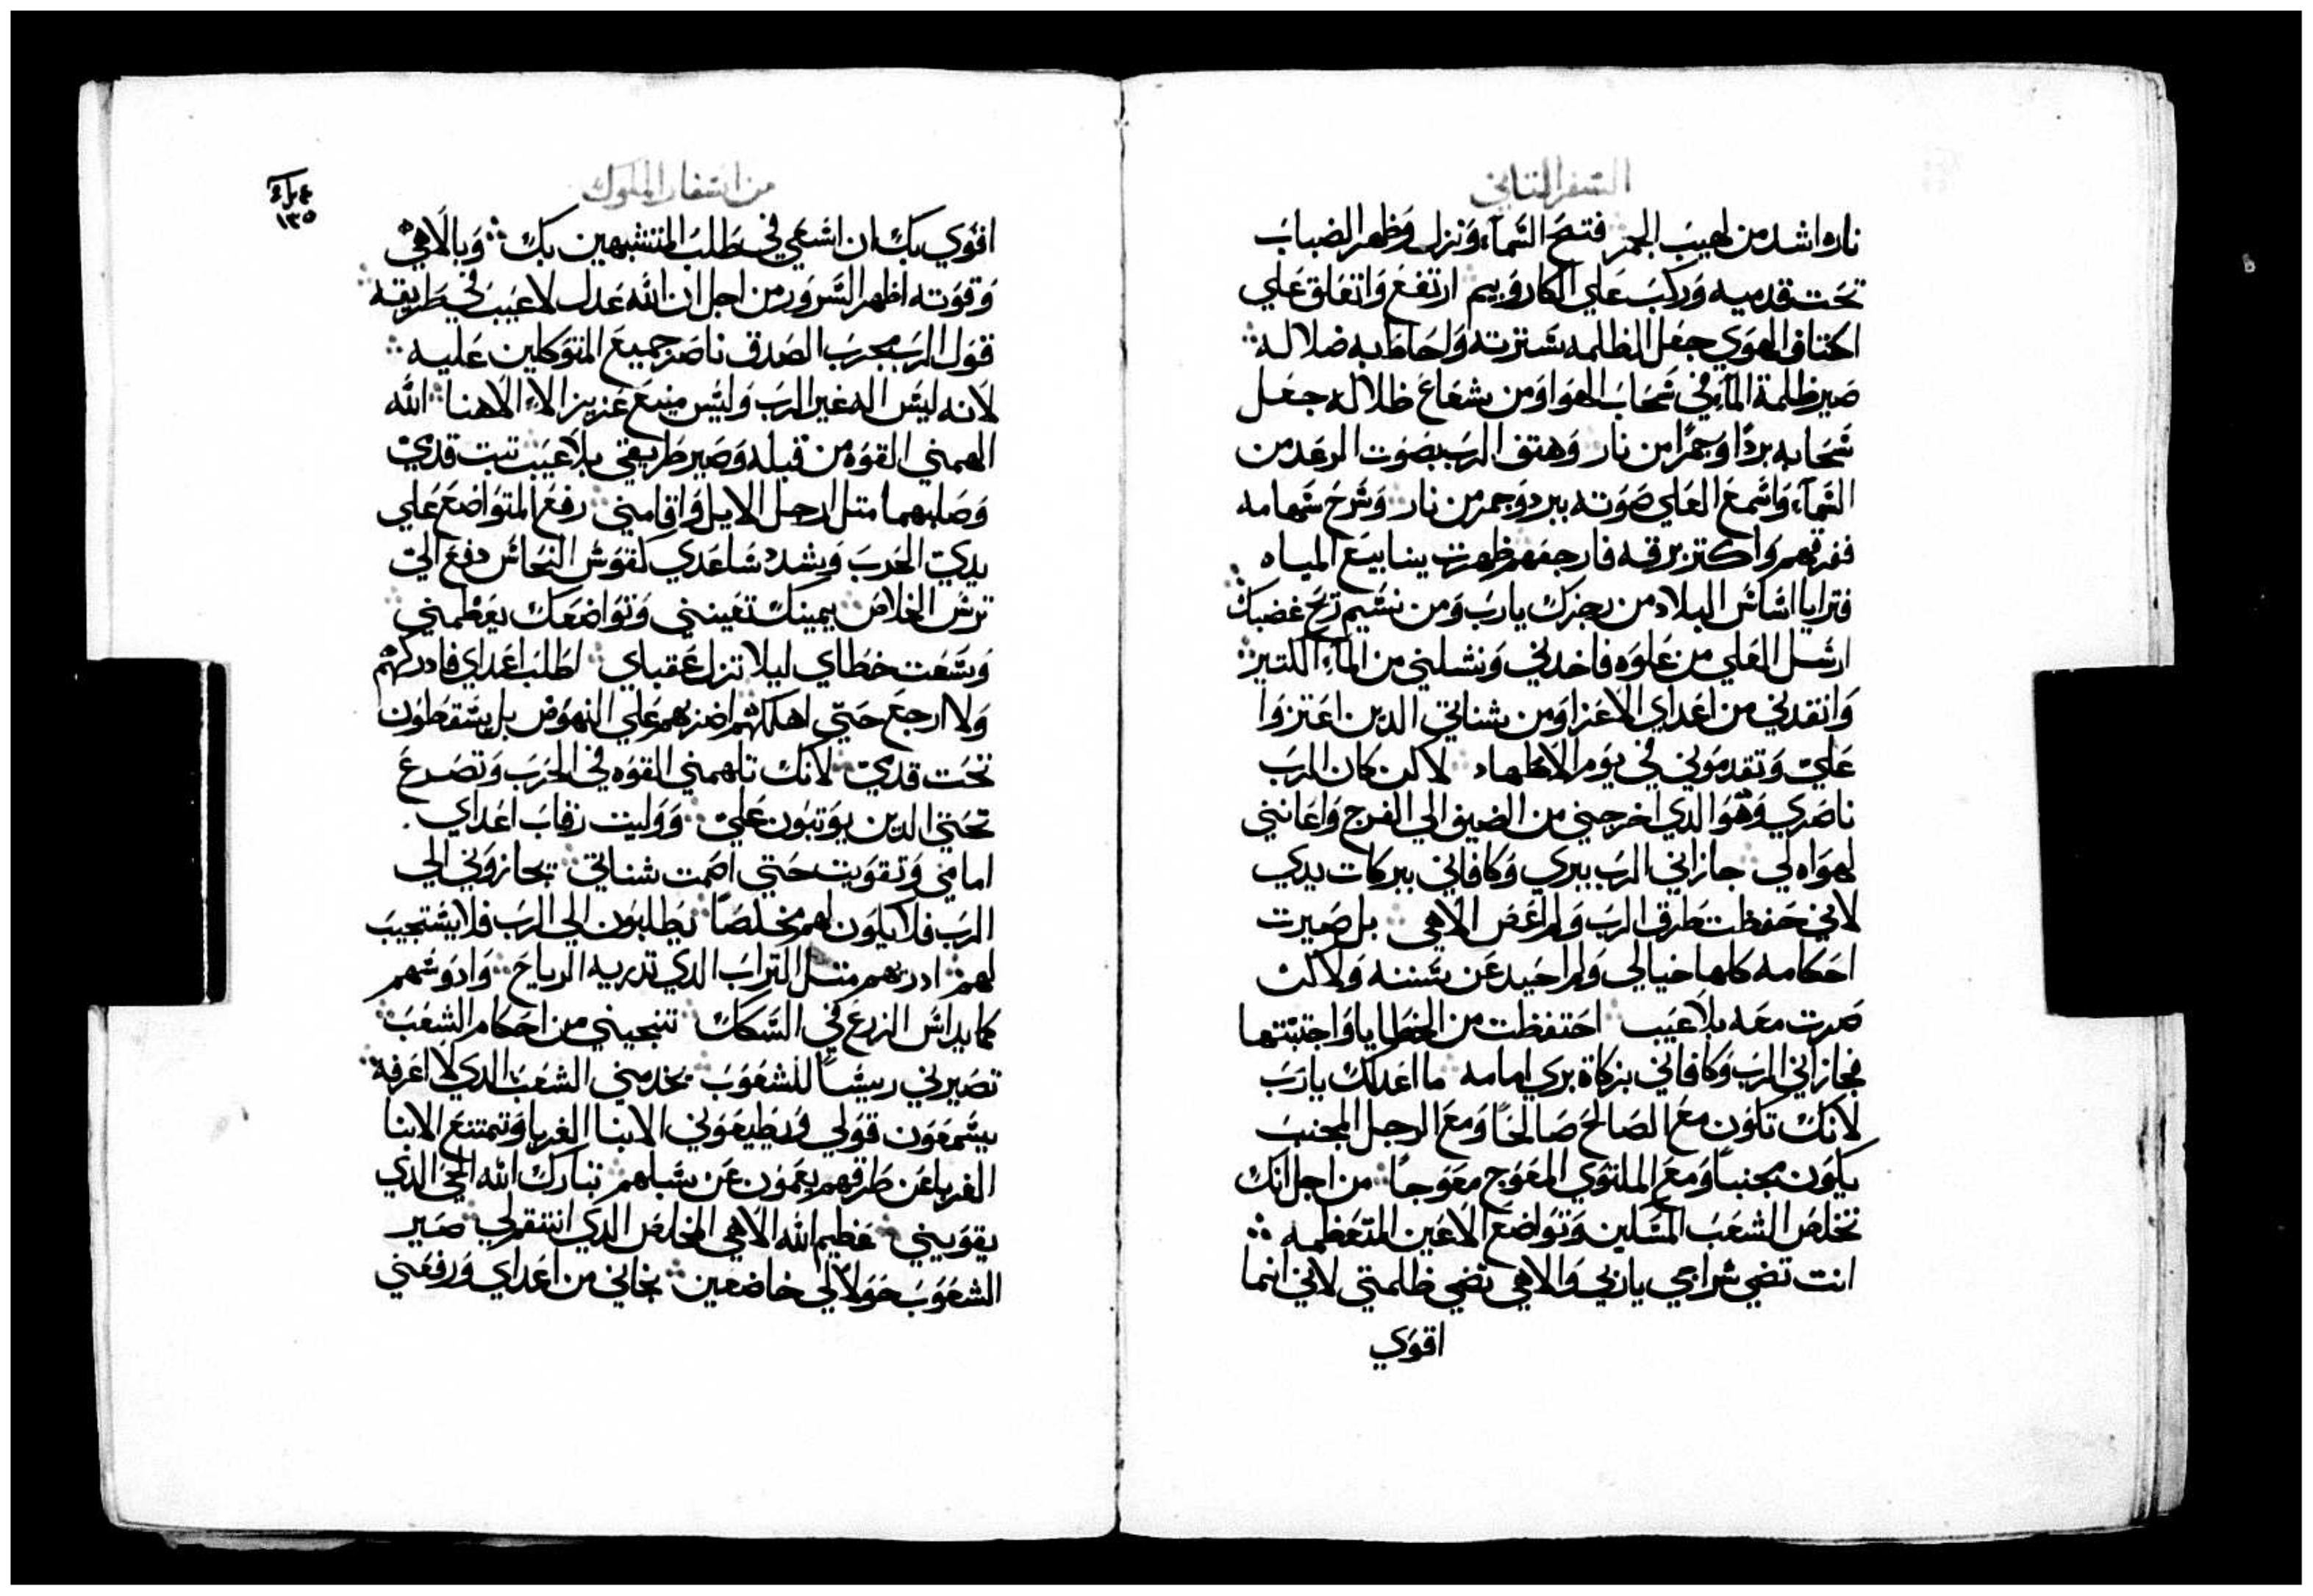 السفر الثاني
ناره اشد من لهيب الجمر فتح السمآء ونزل وظهر الضباب
تحت قدميه وركب علي الكاروبيم ارتفع واتعلق علي
اكتاف الهوي جعل الظلمه سترته ولحاط به ضلاله
صير ظلمة المآء في سحاب الهوا ومن شعاع ظلاله جعل
سحابه بردًا وجمرًا من نار وهتف الرب بصوت الرعد من
السمآء واسمع العلي صوته ببرد وجمر من نار وسرح سهامه
ففرقهم واكتر برقه فارجفهم ظهرت ينابيع المياه
فترايا اساس البلاد من رجزك يارب ومن نسيم ريح غضبك
ارسل العلي من علوه فاخدني ونشلني من المآء الكتير
وانقدني من اعداي الاعزا ومن شناتي الدين اعتزوا
علي وتقدموني في يوم الاظهاد لاكن كان الرب
ناصري وهو الدي اخرجني من الضيق الي الفرج واعانني
لهواه لي جازاني الرب ببري وكافاني ببركات يدي
لاني حفظت طرق الرب ولم اعص الاهي بل صيرت
احكامه كلها خيالي ولم احيد عن سننه ولاكن
صرت معه بلا عيب احتفظت من الخطايا واجتبتها
فجازاني الرب وكافاني بزكاة بري امامه ما اعدلك يارب
لانك تكون مع الصالح صالحًا ومع الرجل المجنب
يكون مجنبًا ومع الملتوي المعوج معوجًا من اجل انك
تخلص الشعب المسلين وتواضع الاعين المتعظمه
انت تضي سراجي ياربي والاهي تضي ظلمتي لاني انما
اقوي
من اسفار الملوك
١٣٥
اقوي بك ان اسعي في طلب المتشبهين بك وبالاهي
وقوته اظهر السرور من اجل ان الله عدل لا عيب في طريقه
قول الرب مجرب الصدق ناصر جميع المتوكلين عليه
لانه ليس اله غير الرب وليس منيع عزيز الاء الاهنا الله
الهمني القوه من قبله وصير طريقي بلا عيب تبت قدمي
وصلبهما متل ارجل الايل واقامني رفع المتواضع علي
يدي الحرب ويشدد ساعدي كقوس النحاس دفع الي
ترس الخلاص يمينك تعينني وتواضعك يعظمني
وسعت خطاي ليلا تزل عقباي لطلب اعداي فادركهم
ولا ارجع حتي اهلكهم اضربهم علي النهوض بل يسقطون
تحت قدمي لانك تلهمني القوه في الحرب وتصرع
تحتي الدين يوتبون علي ووليت رقاب اعداي
امامي وتقويت حتي اصمت شناتي يجازوني الي
الرب فلا يكون لهم مخلصًا يطلبون الي الرب فلا يستجيب
لهم ادريهم متل التراب الدي تدريه الرياح وادوسهم
كما يداس الزرع في السكك تنجيني من احكام الشعب
تصيرني رييسًا للشعوب يخدمني الشعب الدي لا اعرفه
يسمعون قولي ويطيعوني الابنا الغربا وتمتنع الابنا
الغربا عن طرقهم يعمون عن سبلهم تبارك الله الحي الدي
يقويني عظيم الله الاهي المخلص الدي انتقم لي صير
الشعوب حولا لي خاضعين نجاني من اعداي ورفعني